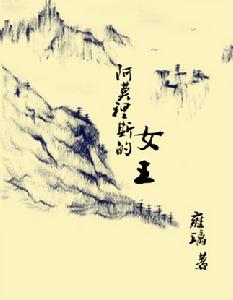 阿莫裡斯的
女王
雍璃 著